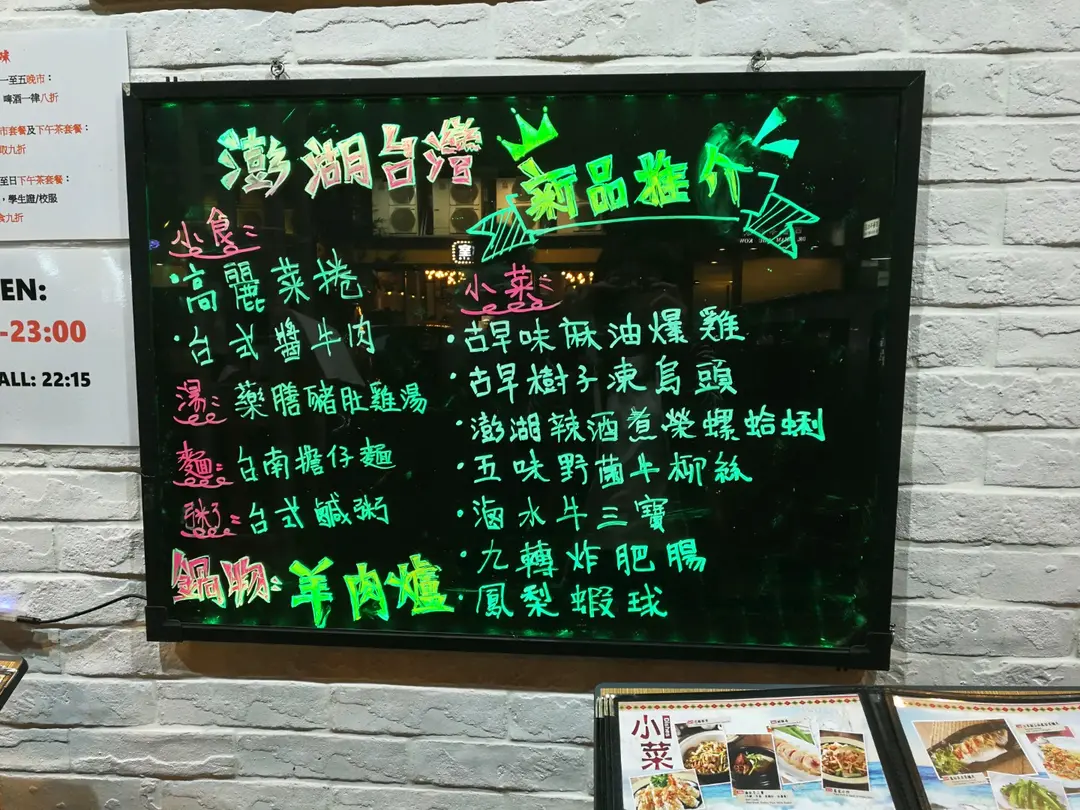 一至五晚市：
啤酒一律八折
市套餐及下午茶套餐：
取九折
至日下午茶套餐：
，學生證/校服
食九折
EN:
-23:00
ALL: 22:15
澎湖台灣
新品推介
小食：
·高麗菜捲
·台式醬牛肉
湯：藥膳豬肚雞湯
麵：台南擔仔麵
粥：台式鹹粥
鍋物：羊肉爐
小菜：
·古早味麻油爆雞
·古早樹子凍烏頭
·澎湖辣酒煮榮螺蛤蜊
·五味野菌牛柳絲
·滷水牛三寶
·九轉炸肥腸
·鳳梨蝦球
窯
小菜